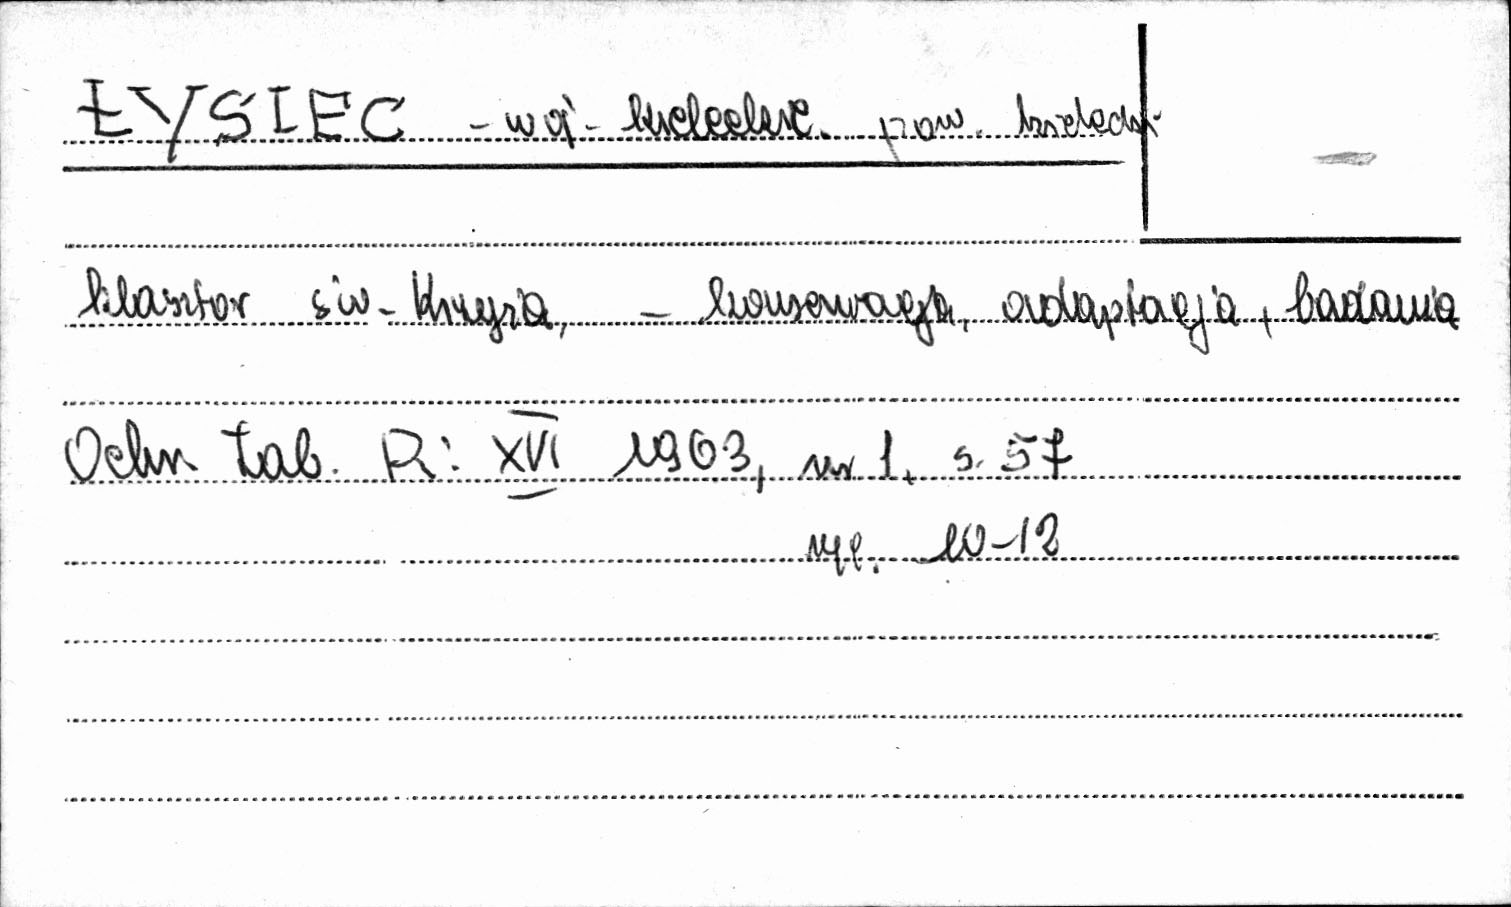 ŁYSIEC - woj. kieleckie. pow. kielecki
klasztor św. Krzyża, - konserwacja, adaptacja, badania
Ochr Zab. R: XVI 1963, nr 1, s. 57
ryc. 10-12